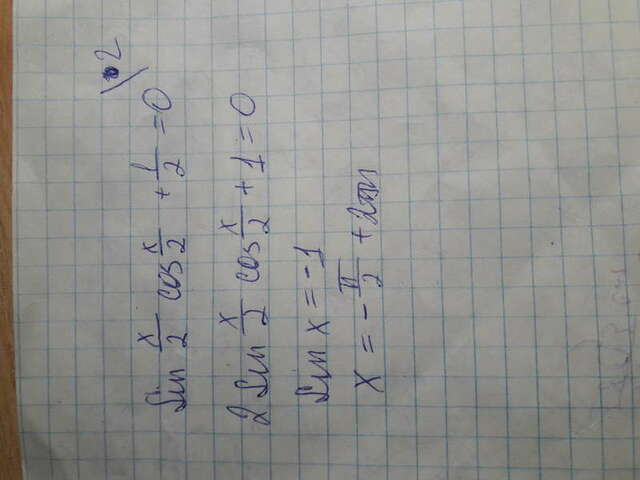 sin x/2 cos x/2 + 1/2 = 0 | · 2
2 sin x/2 cos x/2 + 1 = 0
sin x = -1
x = - π/2 + 2πn